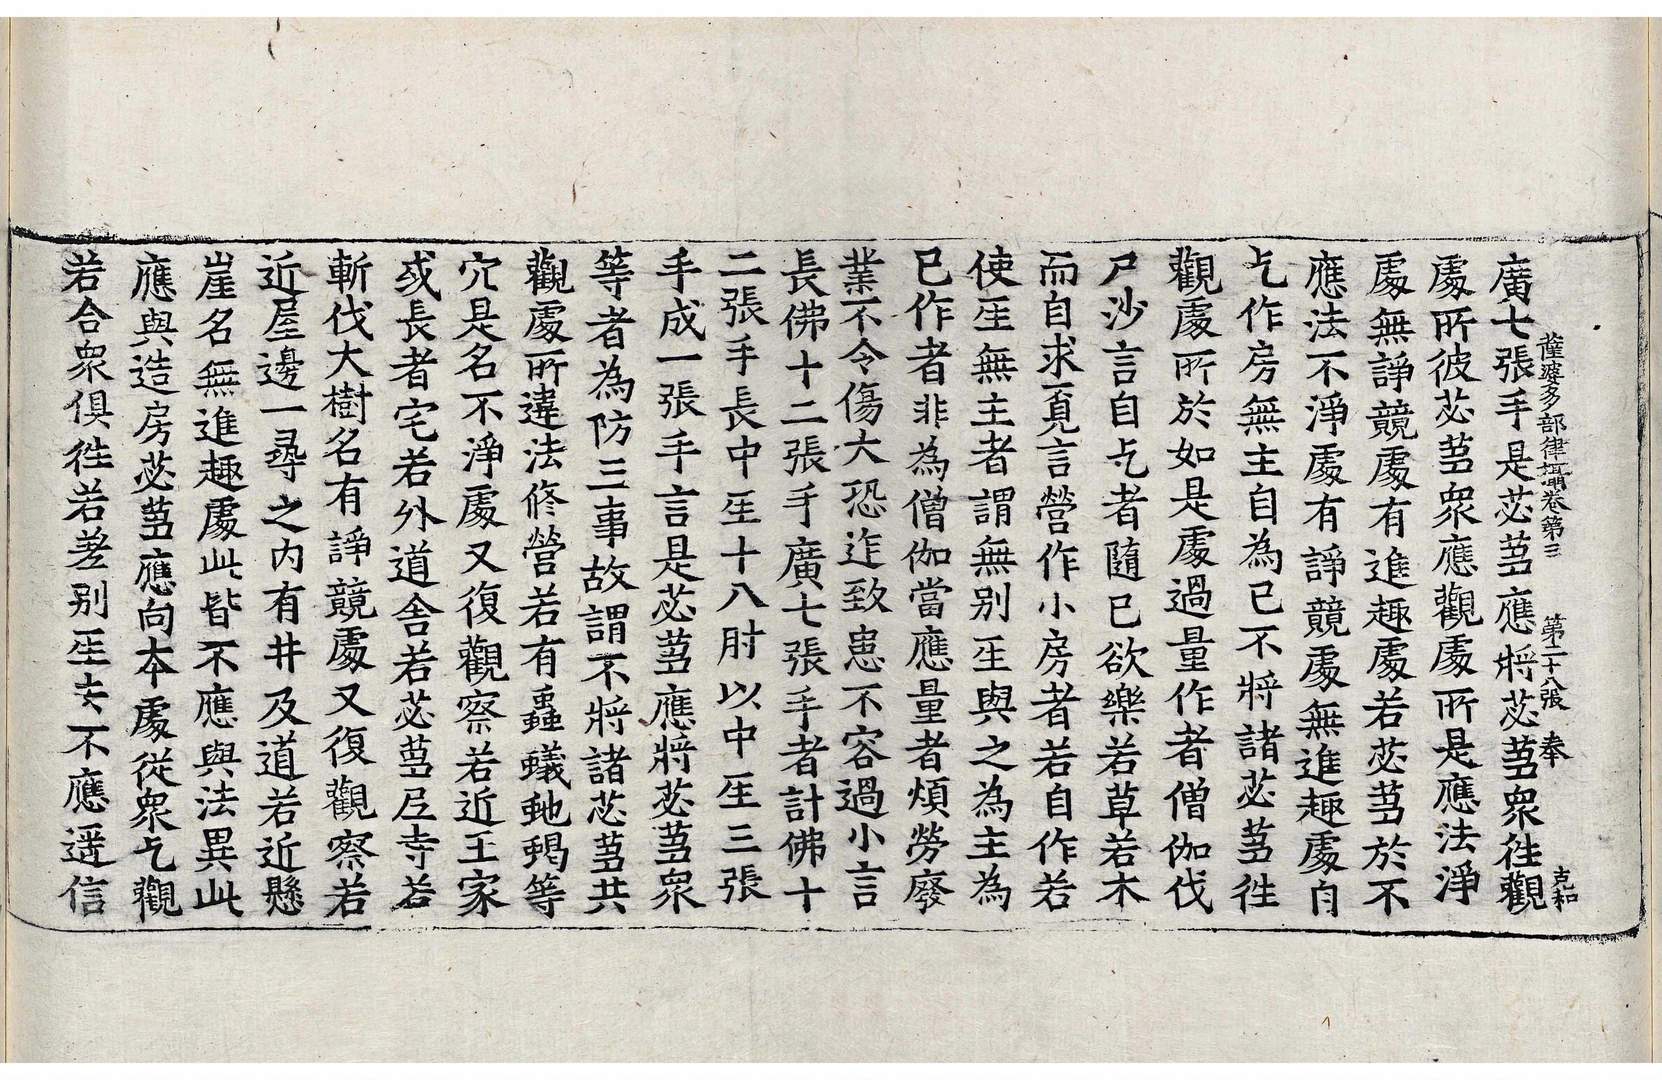 薩婆多部律攝卷第三 第二十八張 奉 古和
廣七張手是苾蒭應將苾蒭衆徃觀
處所彼苾蒭衆應觀處所是應法淨
處無諍競處有進趣處若苾蒭於不
應法不淨處有諍競處無進趣處自
乞作房無主自為已不將諸苾蒭徃
觀處所於如是處過量作者僧伽伐
尸沙言自乞者隨已欲樂若草若木
而自求覓言營作小房者若自作若
使𤯔無主者謂無別𤯔與之為主為
已作者非為僧伽當應量者煩勞廢
業不令傷大恐迮致患不容過小言
長佛十二張手廣七張手者計佛十
二張手長中𤯔十八肘以中𤯔三張
手成一張手言是苾蒭應將苾蒭衆
等者為防三事故謂不將諸苾蒭共
觀處所違法修營若有蟲蟻虵蝎等
穴是名不淨處又復觀察若近王家
或長者宅若外道舍若苾蒭尼寺若
斬伐大樹名有諍競處又復觀察若
近屋邊一尋之内有井及道若近懸
崖名無進趣處此皆不應與法異此
應與造房苾蒭應向本處從衆乞觀
若合衆俱徃若差別𤯔亦不應遥信